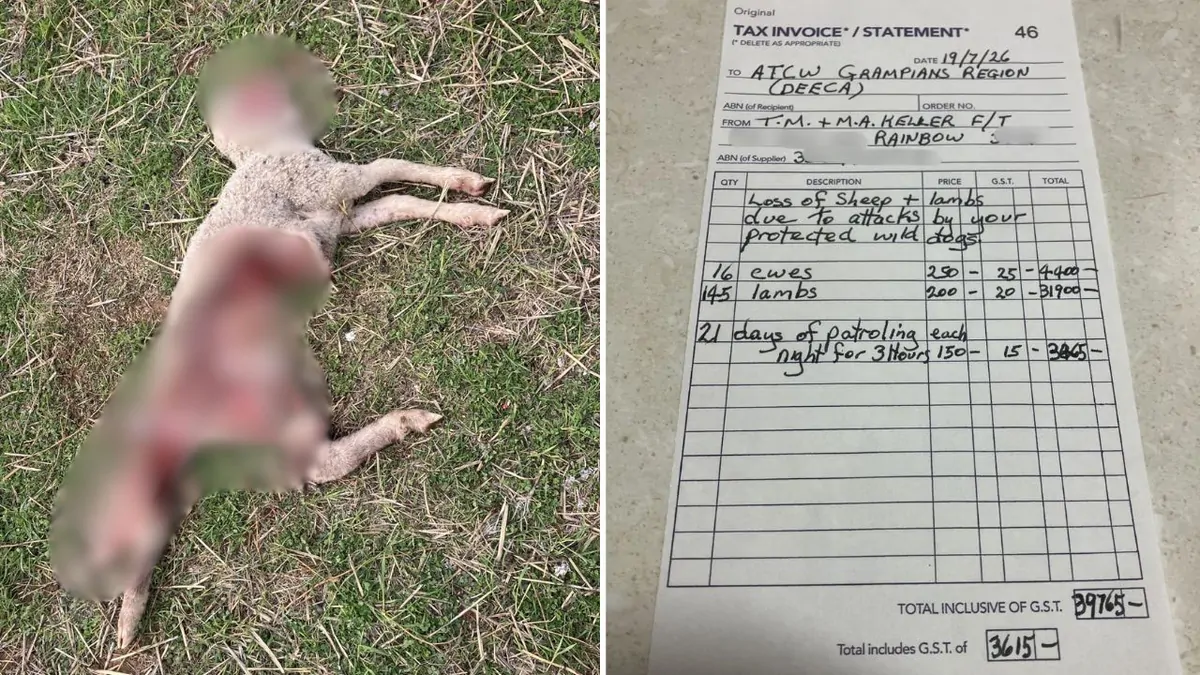 Original
TAX INVOICE* / STATEMENT* 46
(* DELETE AS APPROPRIATE)
DATE 19/7/26
TO ATCW GRAMPIANS REGION
(DEECA)
ABN (of Recipient) ORDER NO.
FROM T.M. + M.A. KELLER F/T
RAINBOW
ABN (of Supplier) 3
QTY DESCRIPTION PRICE G.S.T. TOTAL
Loss of Sheep + lambs
due to attacks by your
protected wild dogs
16 ewes 250 - 25 - 4400 -
145 lambs 200 - 20 - 31900 -
21 days of patroling each
night for 3 Hours 150 - 15 - 3465 -
TOTAL INCLUSIVE OF G.S.T. 39765 -
Total includes G.S.T. of 3615 -